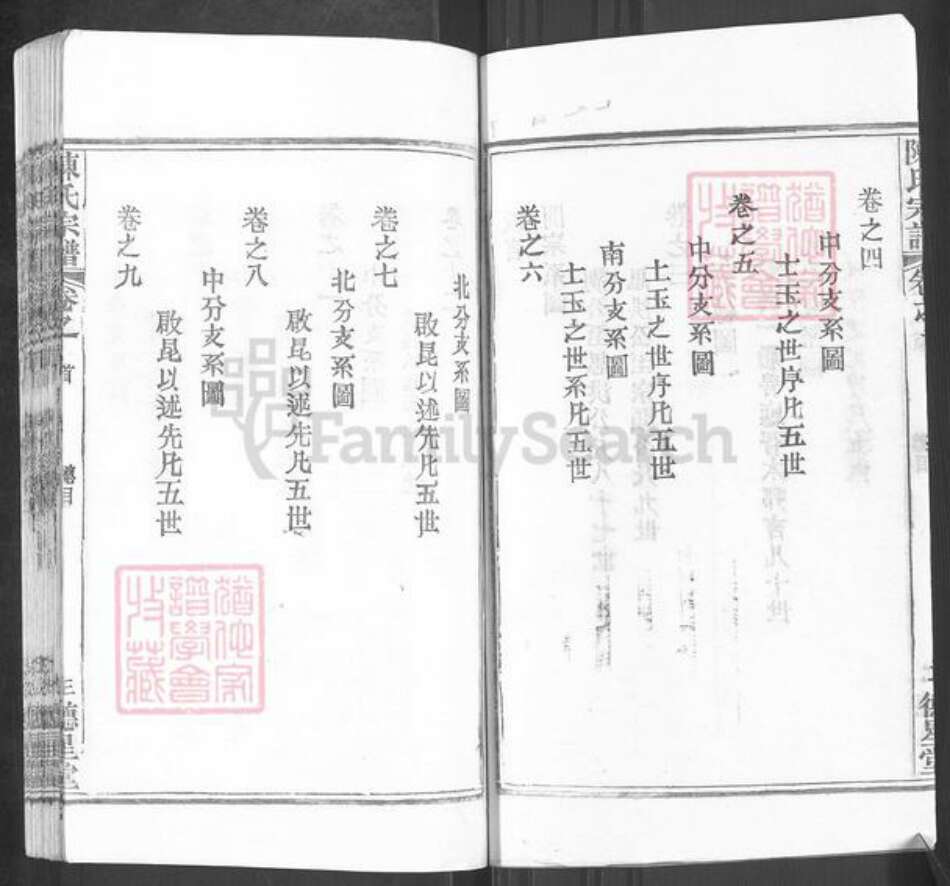 陳氏宗譜
卷之四
中分支系圖
士玉之世序凡五世
卷之五
中分支系圖
士玉之世序凡五世
南分支系圖
士玉之世系凡五世
卷之六
北分支系圖
啟昆以述先凡五世
卷之七
北分支系圖
啟昆以述先凡五世
卷之八
中分支系圖
啟昆以述先凡五世
卷之九
陳氏宗譜
卷之首
總目
三
德星堂
猶他家譜學會收藏
猶他家譜學會收藏
FamilySearch